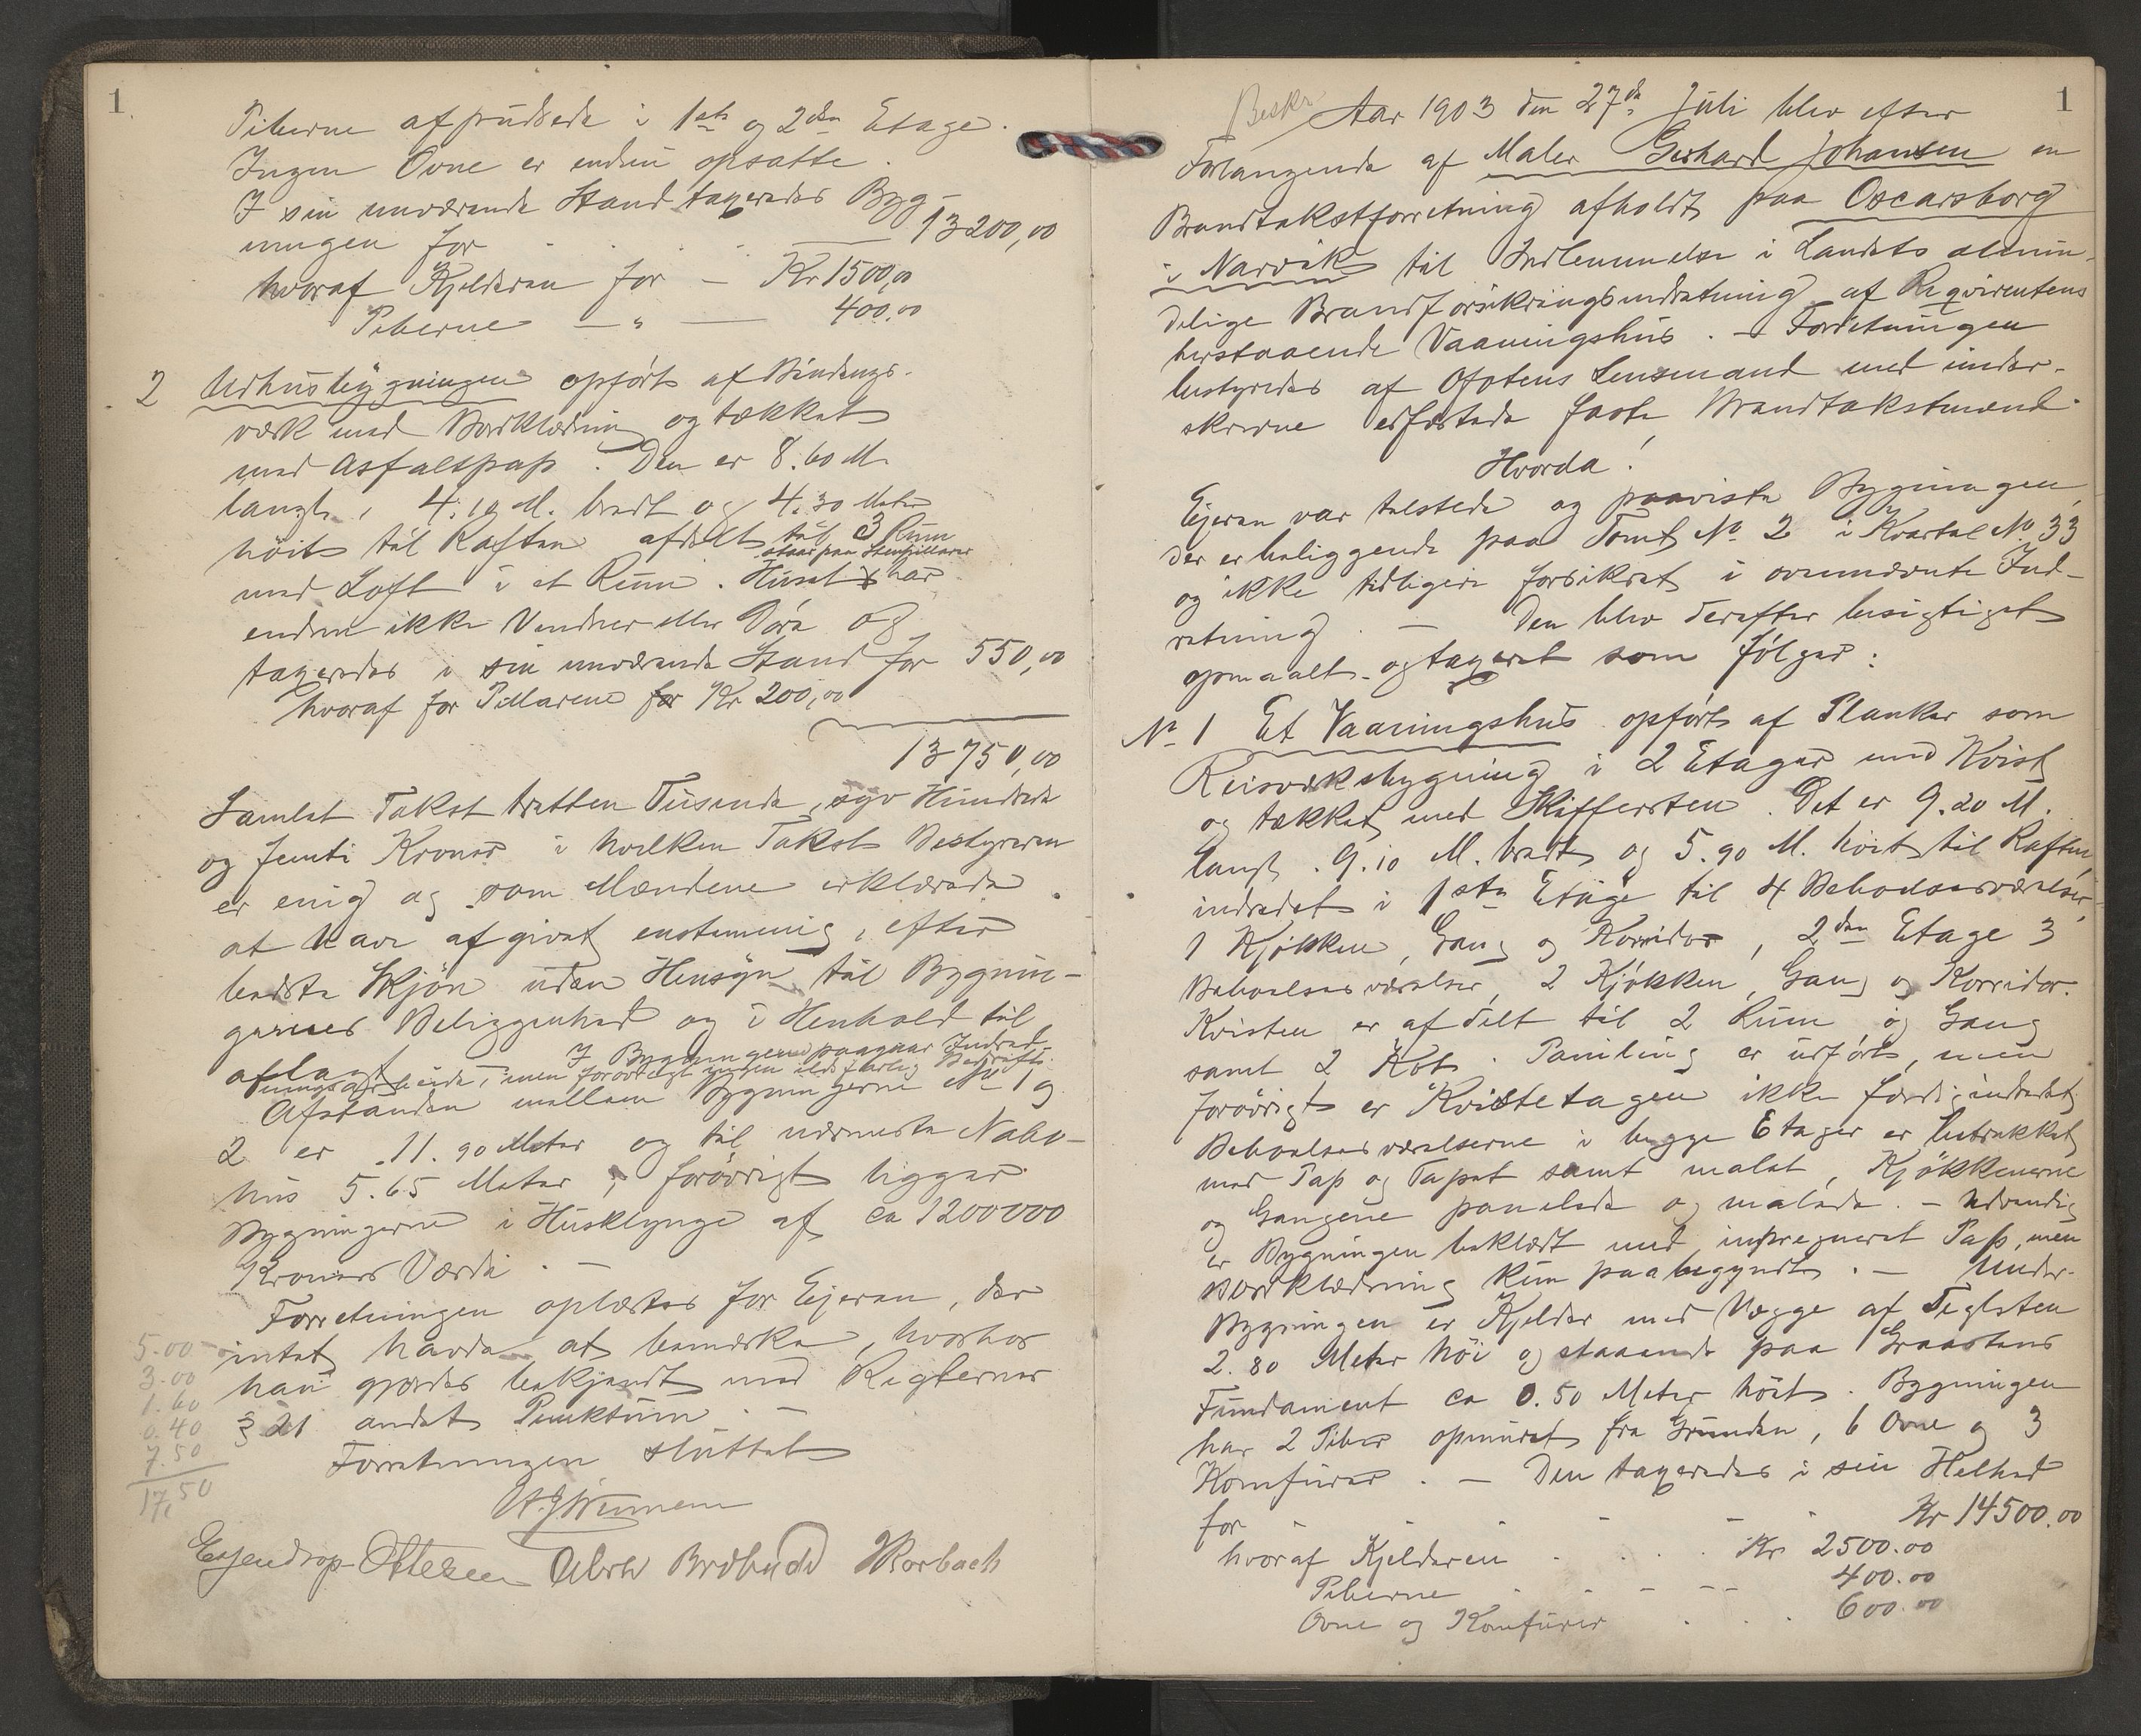 1
Piberne afpudsede i 1ste og 2den Etage.
Ingen Ovne er endnu opsatte.
I sin nuværende Stand taxeredes Byg-
ningen for 13200,00
hvoraf Kjelderen for - Kr 1500,00
Piberne - " - 400.00
2 Udhusbygningen opført af Bindings-
værk med Bordklædning og tækket
med Asfaltpap. Den er 8.60 M.
langt, 4.10 M. bredt og 4.30 Meter
høit til Raften afdelt til 3 Rum
staar paa Stenpillarer
med Loft i et Rum. Huset har
endnu ikke Vinduer eller Døre og
taxeredes i sin nuværende Stand for 550,00
hvoraf for Pillarene for Kr 200,00
13750,00
Samlet Takst tretten Tusende, syv Hundrede
og femti Kroner i hvilken Takst Bestyreren
er enig og som Mændene erklærede
at have afgivet enstemmig, efter
bedste Skjøn uden Hensyn til Bygnin-
gernes Beliggenhed og i Henhold til
aflagt
I Bygningerne paagaar Indred-
ningsarbeide, men forøvrigt ingen ildsfarlig Bedrift.
Afstanden mellem Bygningerne No 1 og
2 er 11.90 Meter og til nærmeste Nabo-
hus 5.65 Meter, forøvrigt ligger
Bygningerne i Husklynge af ca 1200000
Kroners Værdi. -
Forretningen oplæstes for Ejeren, der
intet havde at bemærke, hvorhos
han gjordes bekjendt med Reglernes
§ 21 andet Punktum. -
Forretningen sluttet
5.00
3.00
1.60
0.40
7.50
17,50
Ottesen Brobudt Korbach
1
Beskr
Aar 1903 den 27de Juli blev efter
Forlangende af Maler Gerhard Johansen en
Brandtakstforretning afholdt paa Oscarsborg
i Narvik til Indlemmelse i Landets almin-
delige Brandforsikringsindretning af Reqvirentens
herstaaende Vaaningshus. - Forretningen
bestyredes af Ofotens Lensmand med under-
skrevne edfæstede faste Brandtakstmænd.
Hvorda!
Ejeren var tilstede og paaviste Bygningen,
der er beliggende paa Tomt No 2 i Kvartal No 33
og ikke tidligere forsikret i ovennævnte Ind-
retning. - Den blev derefter besigtiget
opmaalt og taxeret som følger:
No 1 Et Vaaningshus opført af Planker som
Reisverksbygning i 2 Etager med Kvist
og tækket med Skiffersten. Det er 9.20 M.
langt. 9.10 M. bredt og 5.90 M. høit til Raften,
indredet i 1ste Etage til 4 Beboelsesværelser,
1 Kjøkken, Gang og Korridor, 2den Etage 3
Beboelsesværelser, 2 Kjøkken, Gang og Korridor.
Kvisten er afdelt til 2 Rum og Gang
samt 2 Kot. Paniling er udført, men
forøvrigt er Kvistetagen ikke færdigindredet.
Beboelsesværelserne i begge Etager er betrukket
med Pap og Tapet samt malet, Kjøkkenerne
og Gangene panelede og malede. - Udvendig
er Bygningen beklædt med impregneret Pap, men
Bordklædning kun paabegyndt. - Under
Bygningen er Kjelder med Vægge af Teglsten
2.80 Meter høi og staaende paa Graastens
Fundament ca 0.50 Meter høit. Bygningen
har 2 Piber opmuret fra Grunden, 6 Ovne og 3
Komfurer. - Den taxeredes i sin Helhed
for Kr 14500.00
hvoraf Kjelderen Kr 2500.00
Piberne 400.00
Ovne og Komfurer 600.00